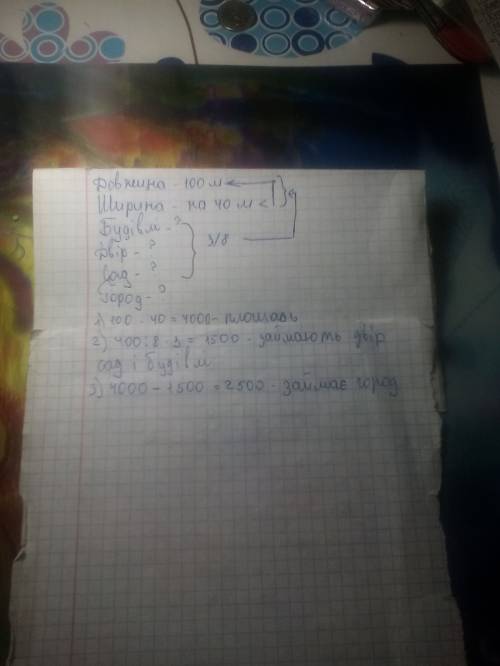 Довжина - 100 м
Ширина - на 40 м <
Будівлі - ?
Двір - ?
Сад - ?
Город - ?
3/8
1) 100 · 40 = 4000 - площадь
2) 400 : 8 · 3 = 1500 - займають двір
сад і будівлі
3) 4000 - 1500 = 2500 - займає город